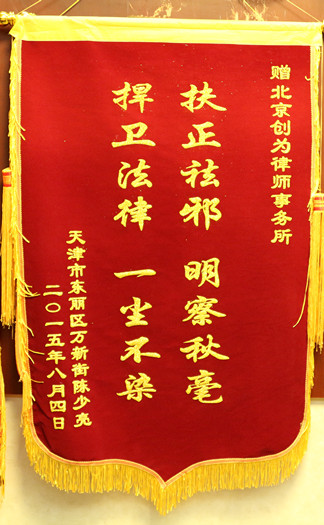 赠北京创为律师事务所
扶正祛邪 明察秋毫
捍卫法律 一尘不染
天津市东丽区万新街陈少亮
二〇一五年八月四日